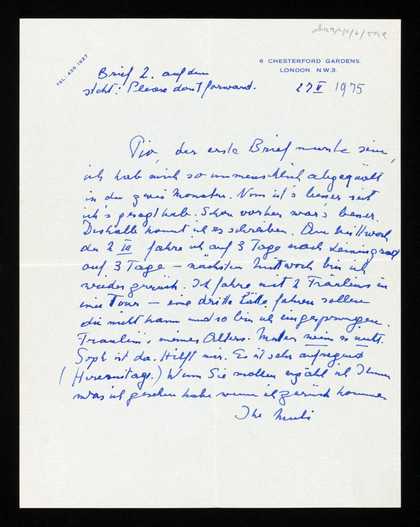 TEL: 435 1887
6 CHESTERFORD GARDENS
LONDON N.W.3.
Brief 2. auf dem
steht: Please dont forward.
27 V 1975
Pio, der erste Brief musste sein,
ich hab mich so unmenschlich abgequält
in den zwei Monaten. Nun ist's besser seit
ich's gesagt hab. Schon vorher war's besser.
Deshalb konnt ich es schreiben. Am Mittwoch
den 2 fahre ich auf 3 Tage nach Leningrad
auf 3 Tage – nächsten Mittwoch bin ich
wieder zurück. Ich fahre mit 2 Fräuleins in
einer Tour – eine dritte hätte fahren sollen
die nicht kann und so bin ich eingesprungen.
Fräuleins meines Alters.
Soph ist da. Hilft mir. Es ist sehr aufregend
(Heremitage.) Wenn Sie wollen erzähl ich Ihnen
was ich gesehen habe wenn ich zurück komme
Ihr